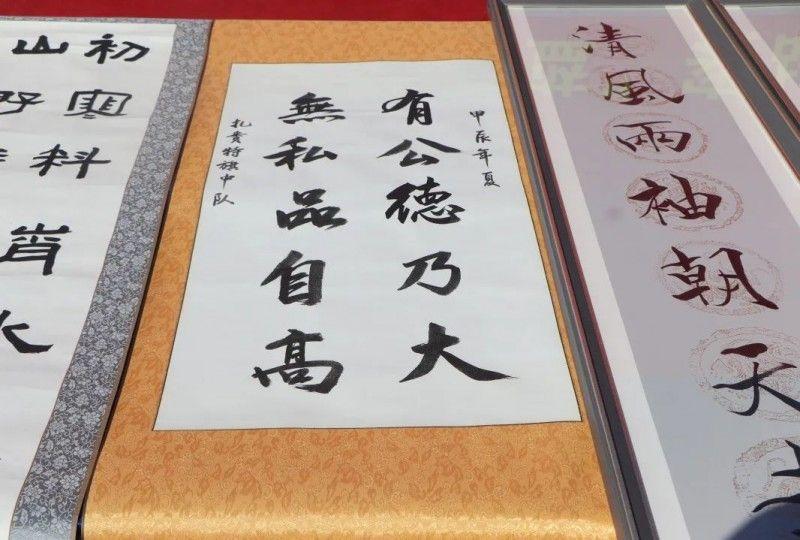 清風兩袖朝天
甲辰年夏
有公德乃大
無私品自高
扎賚特旗中队
初寒料
山